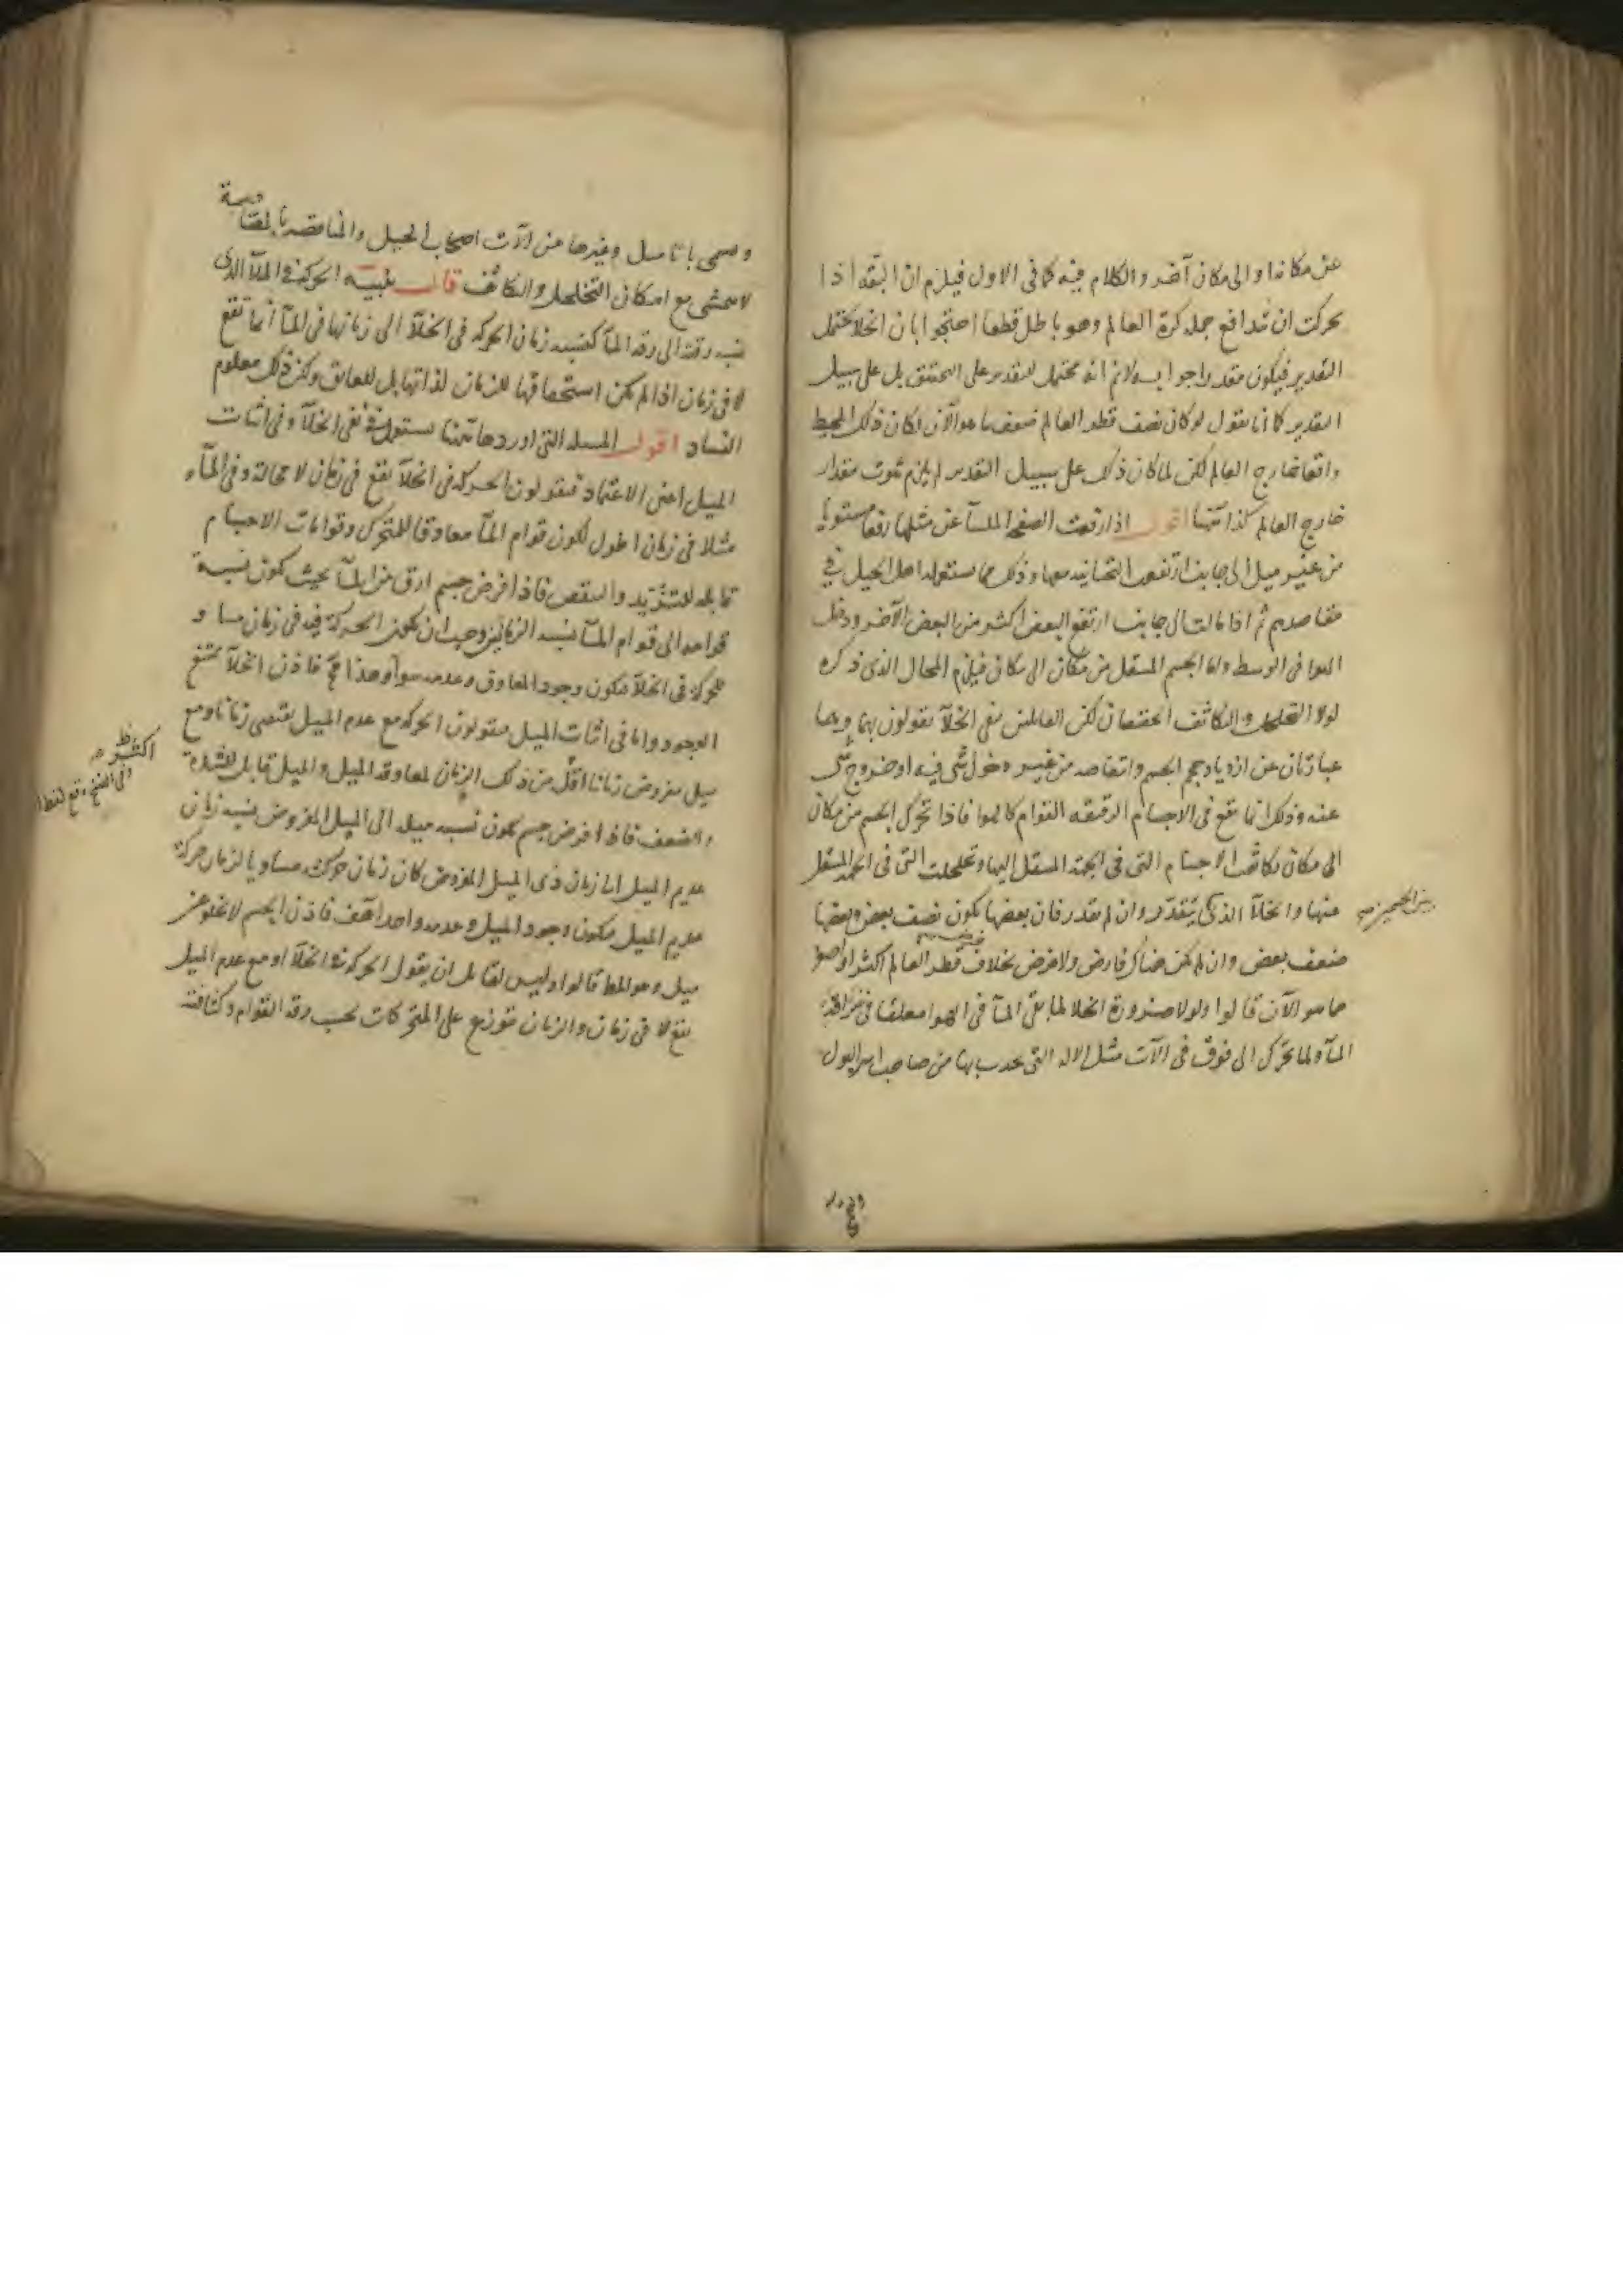 عن مكانها والى مكان آخر والكلام فيه كما فى الاول فيلزم ان البقه اذا
تحركت ان تدافع جملة كرة العالم وهو باطل قطعا احتجوا بان الخلا يحتمل
التقدير فيكون مقدرا جوابه لانم انه محتمل للتقدير على التحقيق بل على سبيل
التقدير كما انا نقول لو كان نصف قطر العالم ضعف ما هو الآن لكان ذلك المحيط
واقعا خارج العالم لكن لما كان ذلك على سبيل التقدير لم يلزم ثبوت مقدار
خارج العالم كذا هنا اقول اذا رفعت الصفحة الملسآ عن مثلها رفعا مستويا
من غير ميل الى جانب ارتفعت التحتانيه معها وذلك مما يستعمله اهل الحيل فى
مقاصدهم ثم اذا مالت الى جانب ارتفع البعض اكثر من البعض الآخر ودخل
الهوا فى الوسط واما الجسم المنتقل من مكان الى مكان فيلزم المحال الذى ذكره
لولا التخلخل والتكاثف الحقيقيان لكن القائلين بنفى الخلآ يقولون بهما وهما
عبارتان عن ازدياد حجم الجسم وانتقاصه من غير دخول شى فيه او خروج شى
عنه وذلك انما يقع فى الاجسام الرقيقه القوام كالهوا فاذا تحرك الجسم من مكان
الى مكان تكاثفت الاجسام التى فى الجهة المنتقل اليها وتخلخلت التى فى الجهة المنتقل
عنها والخلآ الذى يتقدر وان لم يقدر فان بعضها يكون نصف بعض وبعضها
ضعف بعض وان لم يكن هناك فارض ولا فرض بخلاف قطر العالم اكثر او اصغر
مما هو الآن قالوا ولولا ضرورة الخلا لما بقى المآ فى الهوا معلقا فى
المآ ولما تحرك الى فوق فى آلات مثل الاله التى يجذب بها من صاحب اسر البول
بين الجسمين صح
وتسمى وغيرها من آلات اصحاب الحيل والمناقضه بالمقاسة
لا تتمشى مع امكان التخلخل والتكاثف قال تنبيه الحركة فى الملآ الذى
نسبه رقته الى رقة المآ كنسبه زمان الحركه فى الخلآ الى زمانها فى المآ انما تقع
لا فى زمان اذا لم يكن استحقاقها للزمان لذاتها بل للعائق ولكن ذلك معلوم
الفساد اقول المسله التى اوردها هنا تستعمل فى نفى الخلآ وفى اثبات
الميل اعنى الاعتماد فيقولون الحركه فى الخلآ تقع فى زمان لا محالة وفى المآء
مثلا فى زمان اطول لكون قوام المآ معاوقا للمتحرك وقوامات الاجسام
قابله للتزيد والتنقص فاذا فرض جسم ارق من المآ بحيث تكون نسبة
قوامه الى قوام المآ نسبه الزمانين وجب ان تكون الحركة فيه فى زمان مساو
للحركة فى الخلآ فيكون وجود المعاوق وعدمه سوآ وهذا مح فاذن الخلآ ممتنع
الوجود واما فى اثبات الميل فيقولون الحركه مع عدم الميل يقتضى زمانا ومع
ميل مفروض زمانا اقل من ذلك الزمان لمعاوقه الميل والميل قابل للشدة
والضعف فاذا فرض جسم يكون نسبه ميله الى الميل المفروض نسبه زمان
عديم الميل الى زمان ذى الميل المفروض كان زمان حركته مساويا لزمان حركة
عديم الميل فيكون وجود الميل وعدمه واحدا هف فاذن الجسم لا يخلو عن
ميل وهو المط قالوا وليس لقائل ان يقول الحركة فى الخلآ او مع عدم الميل
تقع لا فى زمان والزمان يتوزع على المتحركات بحسب رقة القوام وكثافته
اكثر ظ